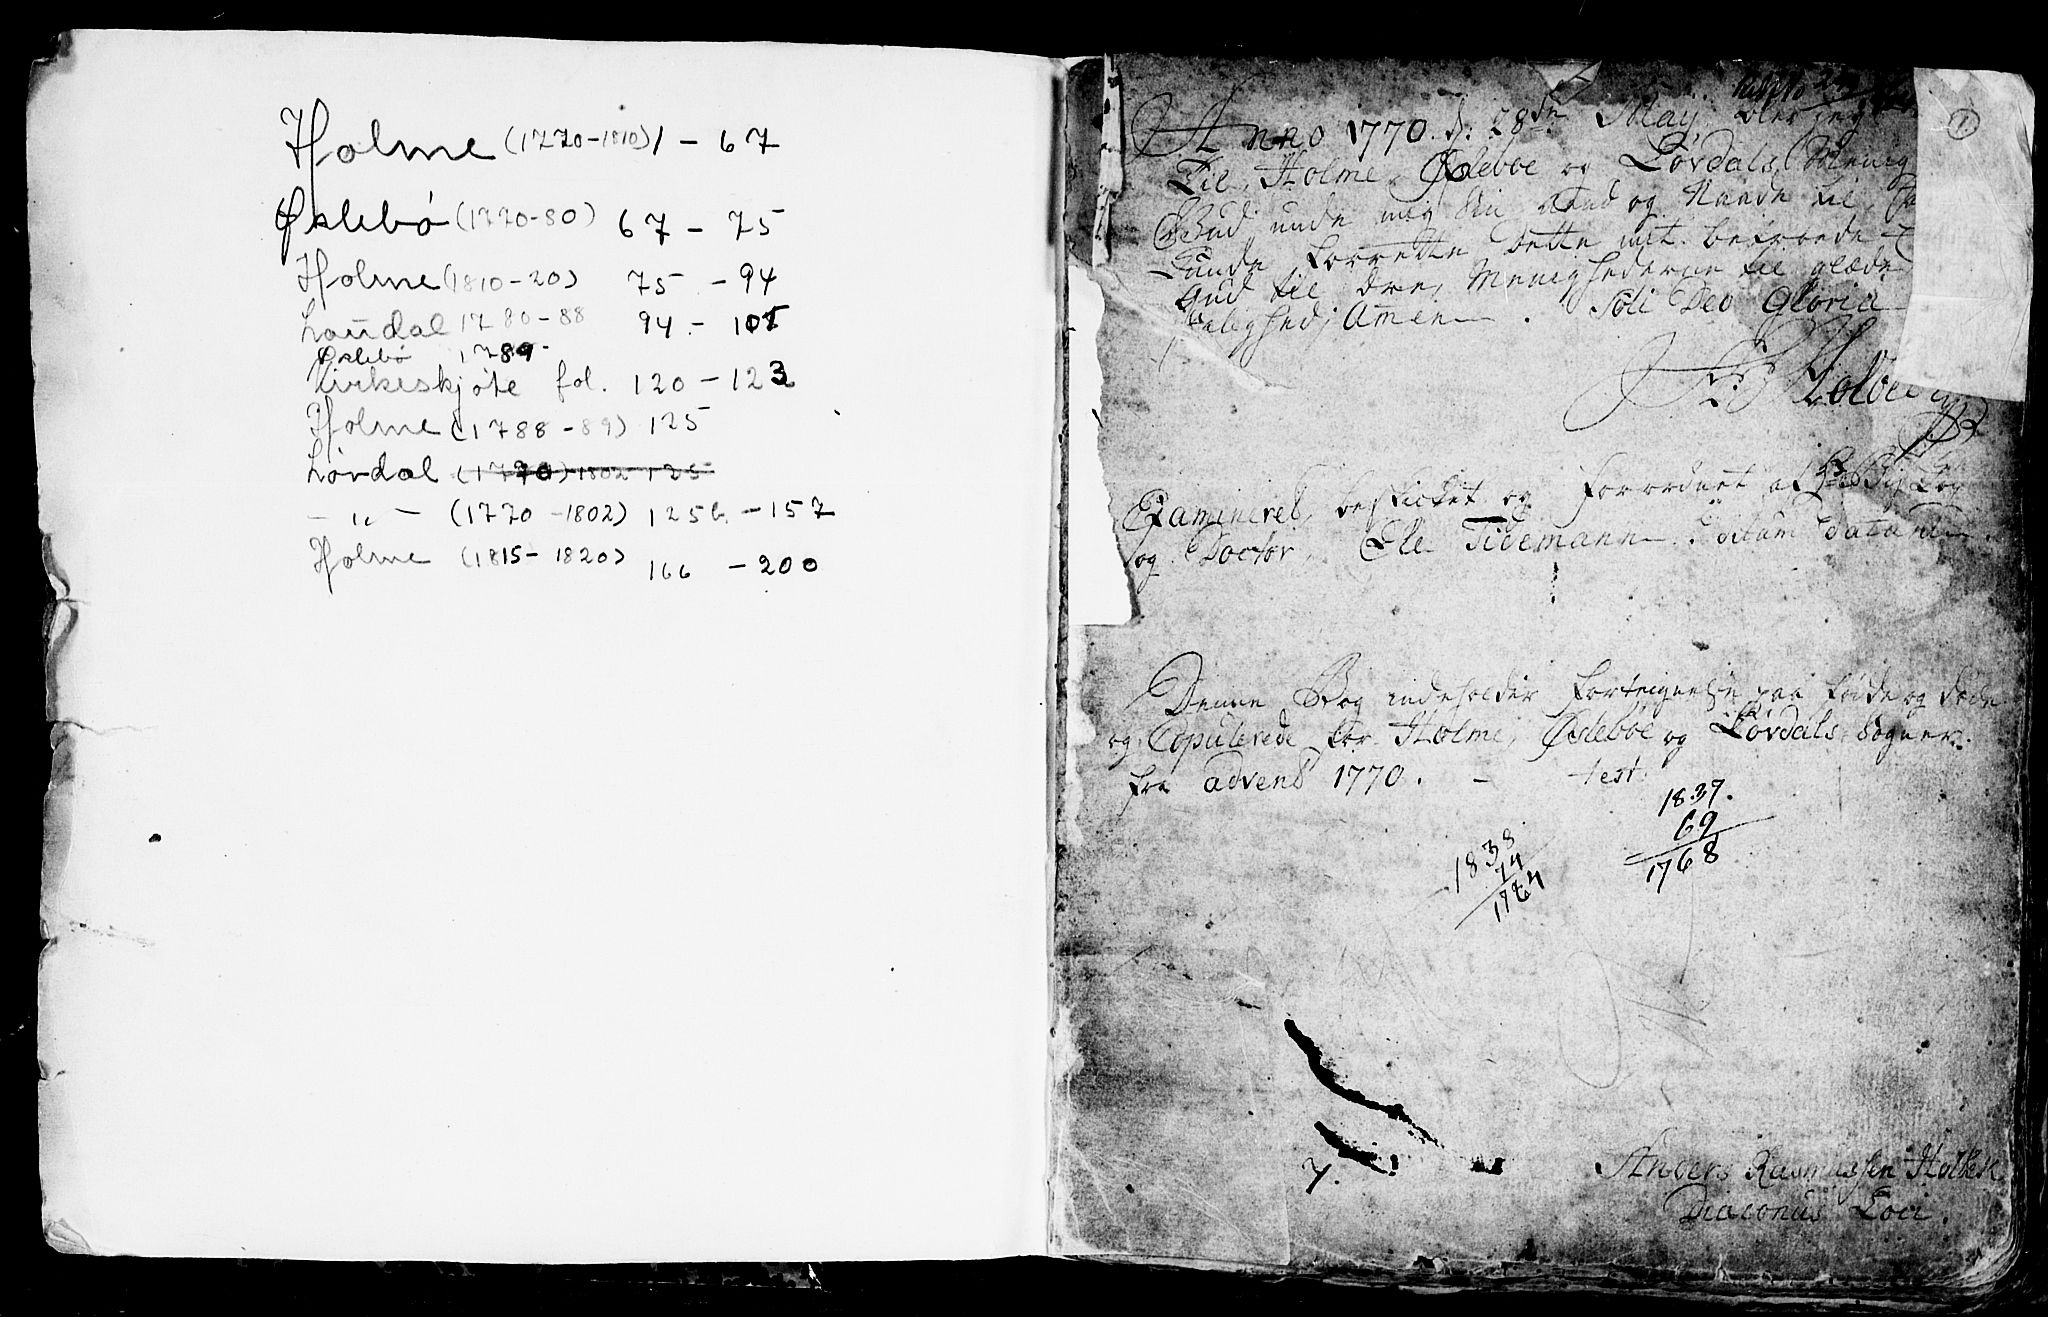 Holme (1770-1810) 1 - 67
Øslebö (1770-80) 67 - 75
Holme (1810-20) 75 - 94
Laudal 1780-88 94 -
Øslebö 1789-
Kirkeskjøte fol. 120 - 123
Holme (1788-89) 125
Lövdal (1770)-1802 125
- " - (1770-1802) 125b. - 157
Holme (1815-1820) 166 - 200
1
Anno 1770. d: 28de May,
Til, Holme, Øsleboe og Lövdals,
Gud unde mig Sin Aand og Naade til,
kunde forrette dette mit
Gud til Ære, Menighederne til glæde
Salighed, Amen. Soli Deo Gloria
Holbe
Examineret, beskicket og forordnet af
og Doctor, Ole Tidemann.
Denne Bog indeholder fortegnelse paa fødde og døde
og Copulerede for Holme, Øsleboe og Lövdals, Sogner.
fra advent 1770. - test.
1837.
69
1768
1838
74
1764
7.
Anders Rasmussen
Diaconus Loci.